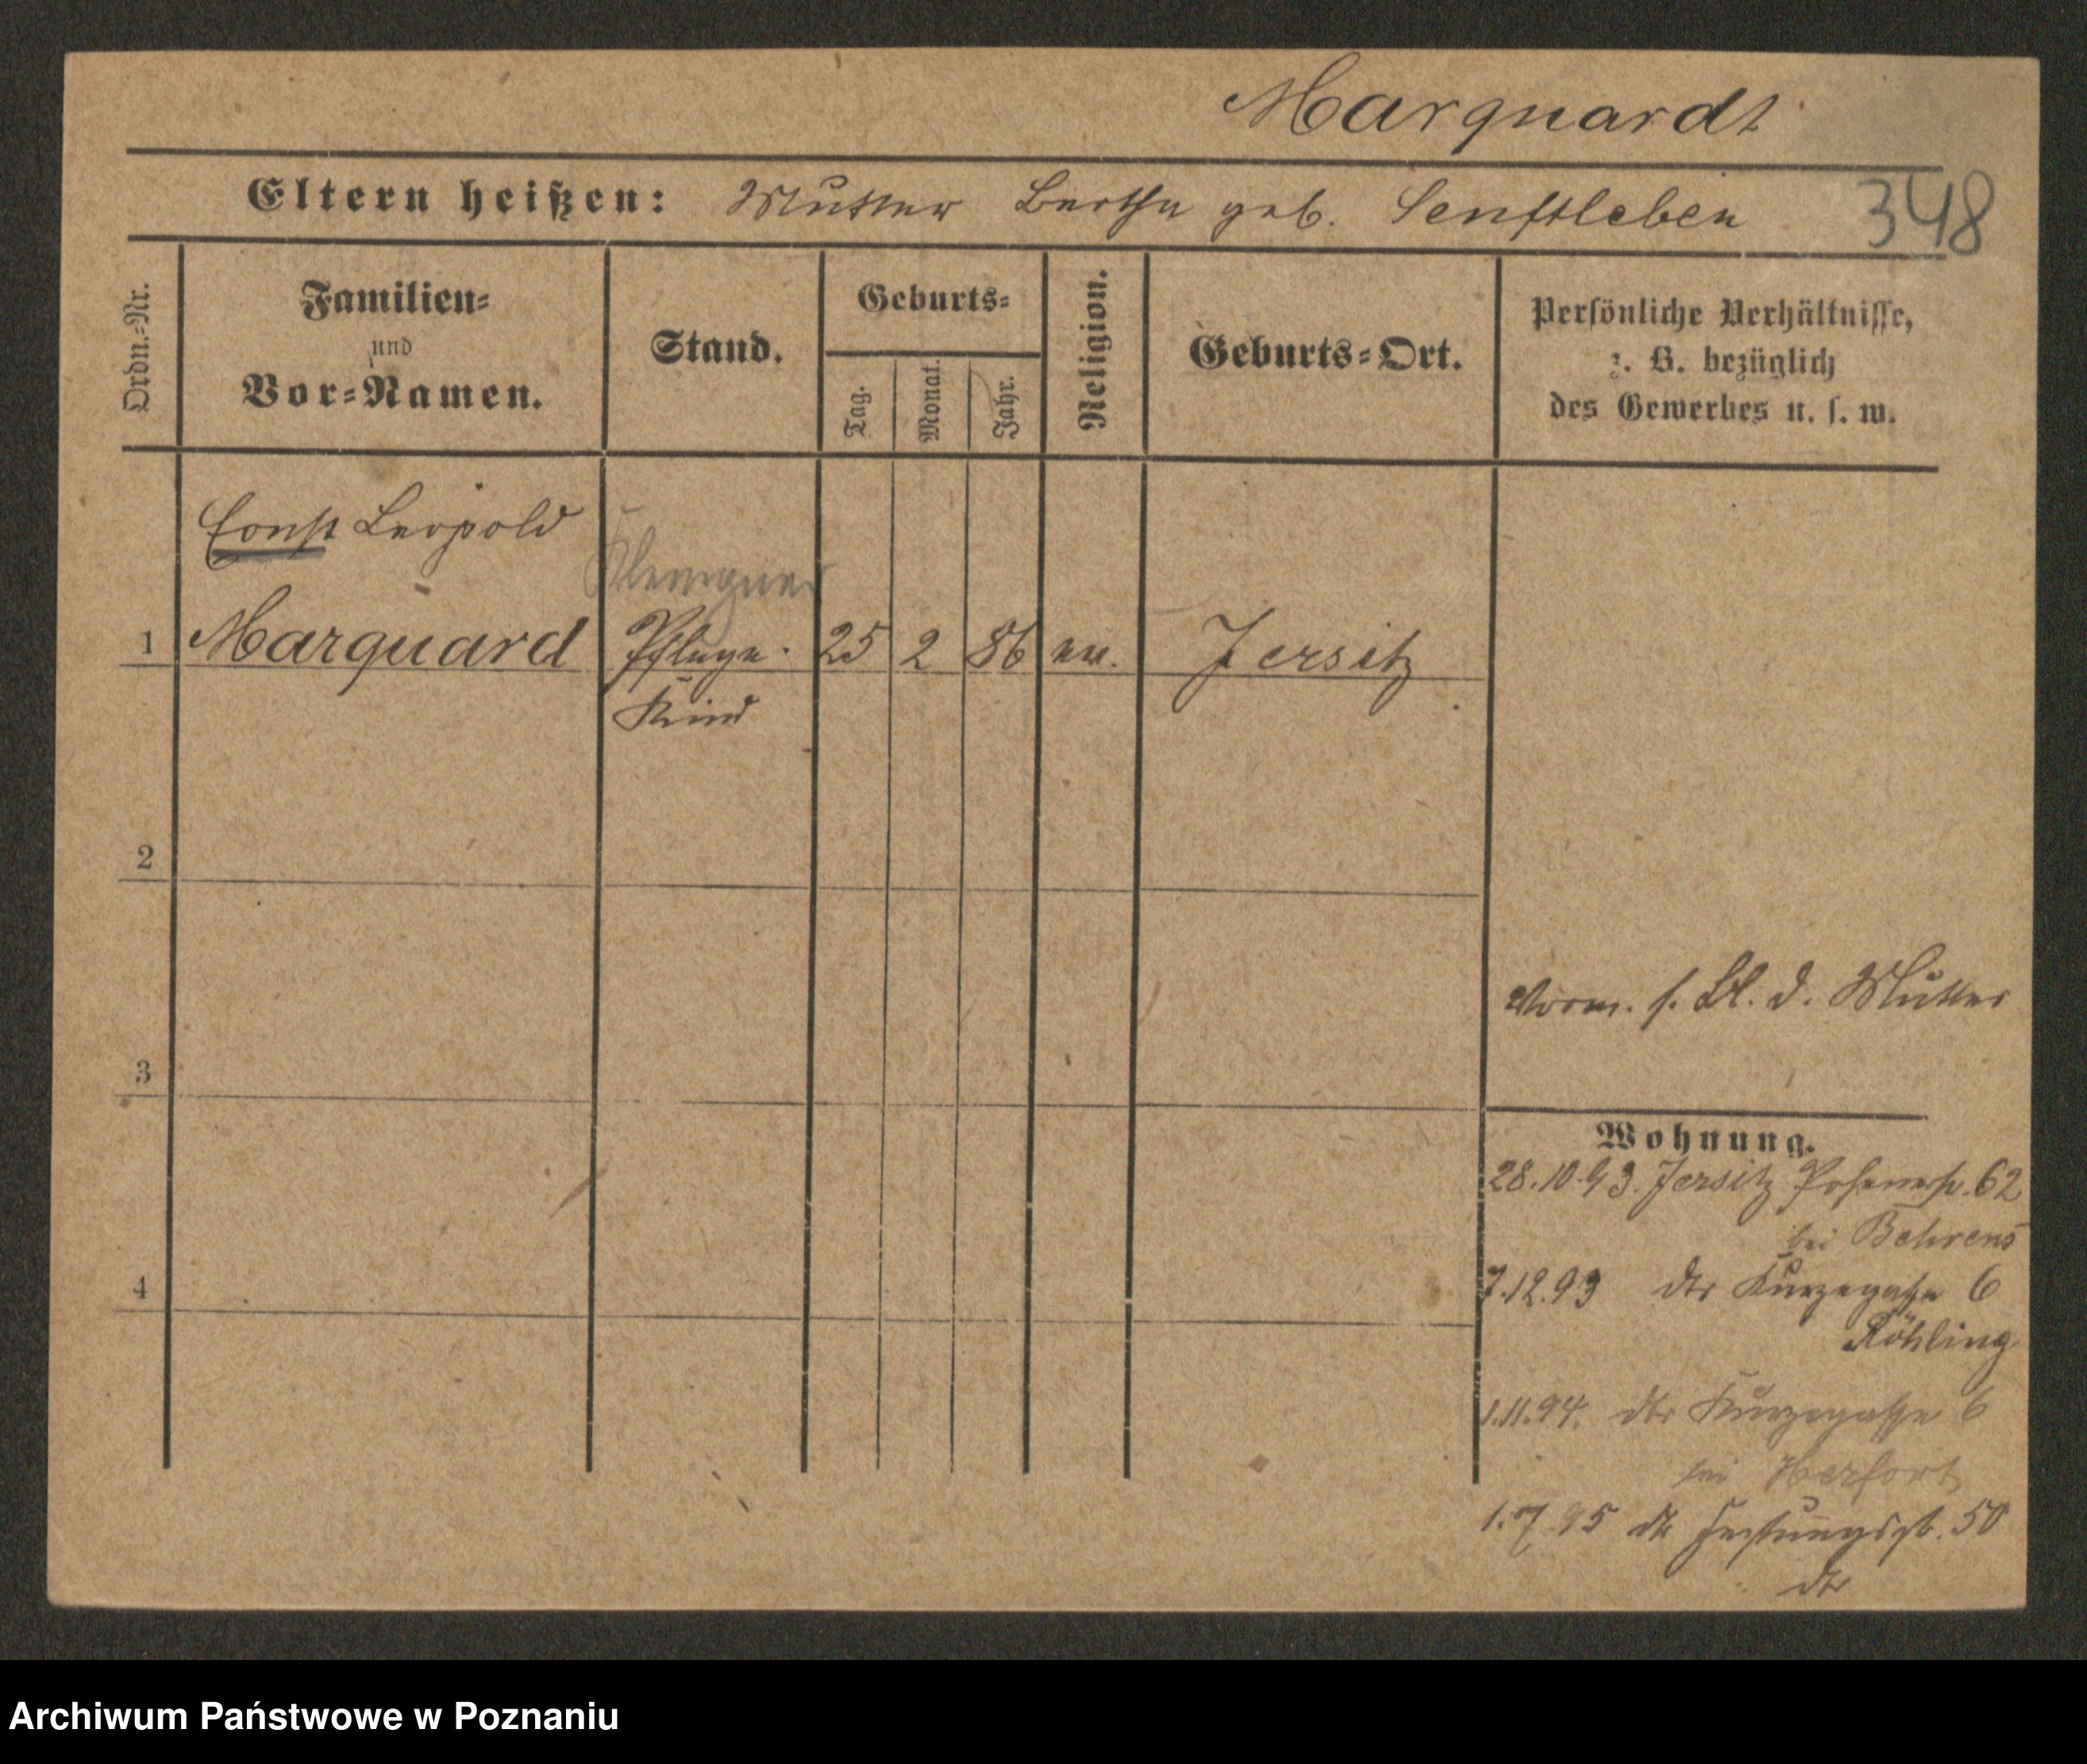 Marquardt
Eltern heißen: Mutter Bertha geb. Senftleben 348
Ordn.=Nr.
Familien=
und
Vor=Namen.
Stand.
Geburts=
Tag.
Monat.
Jahr.
Religion.
Geburts=Ort.
Persönliche Verhältnisse,
z. B. bezüglich
des Gewerbes u. s. w.
Ernst Leopold
Klempner
1 Marquard Pflege- 25 2 86 ev. Jersitz
Kind
2
Vorm. s. Bl. d. Mutter
3
Wohnung.
28.10.93. Jersitz Posenerstr. 62
bei Behrens
7.12.93 dto Kurzegasse 6
4
Röhling
1.11.94. dto Kurzegasse 6
bei Herfort
1.7.95 dto Festungsstr. 50
dto
Archiwum Państwowe w Poznaniu